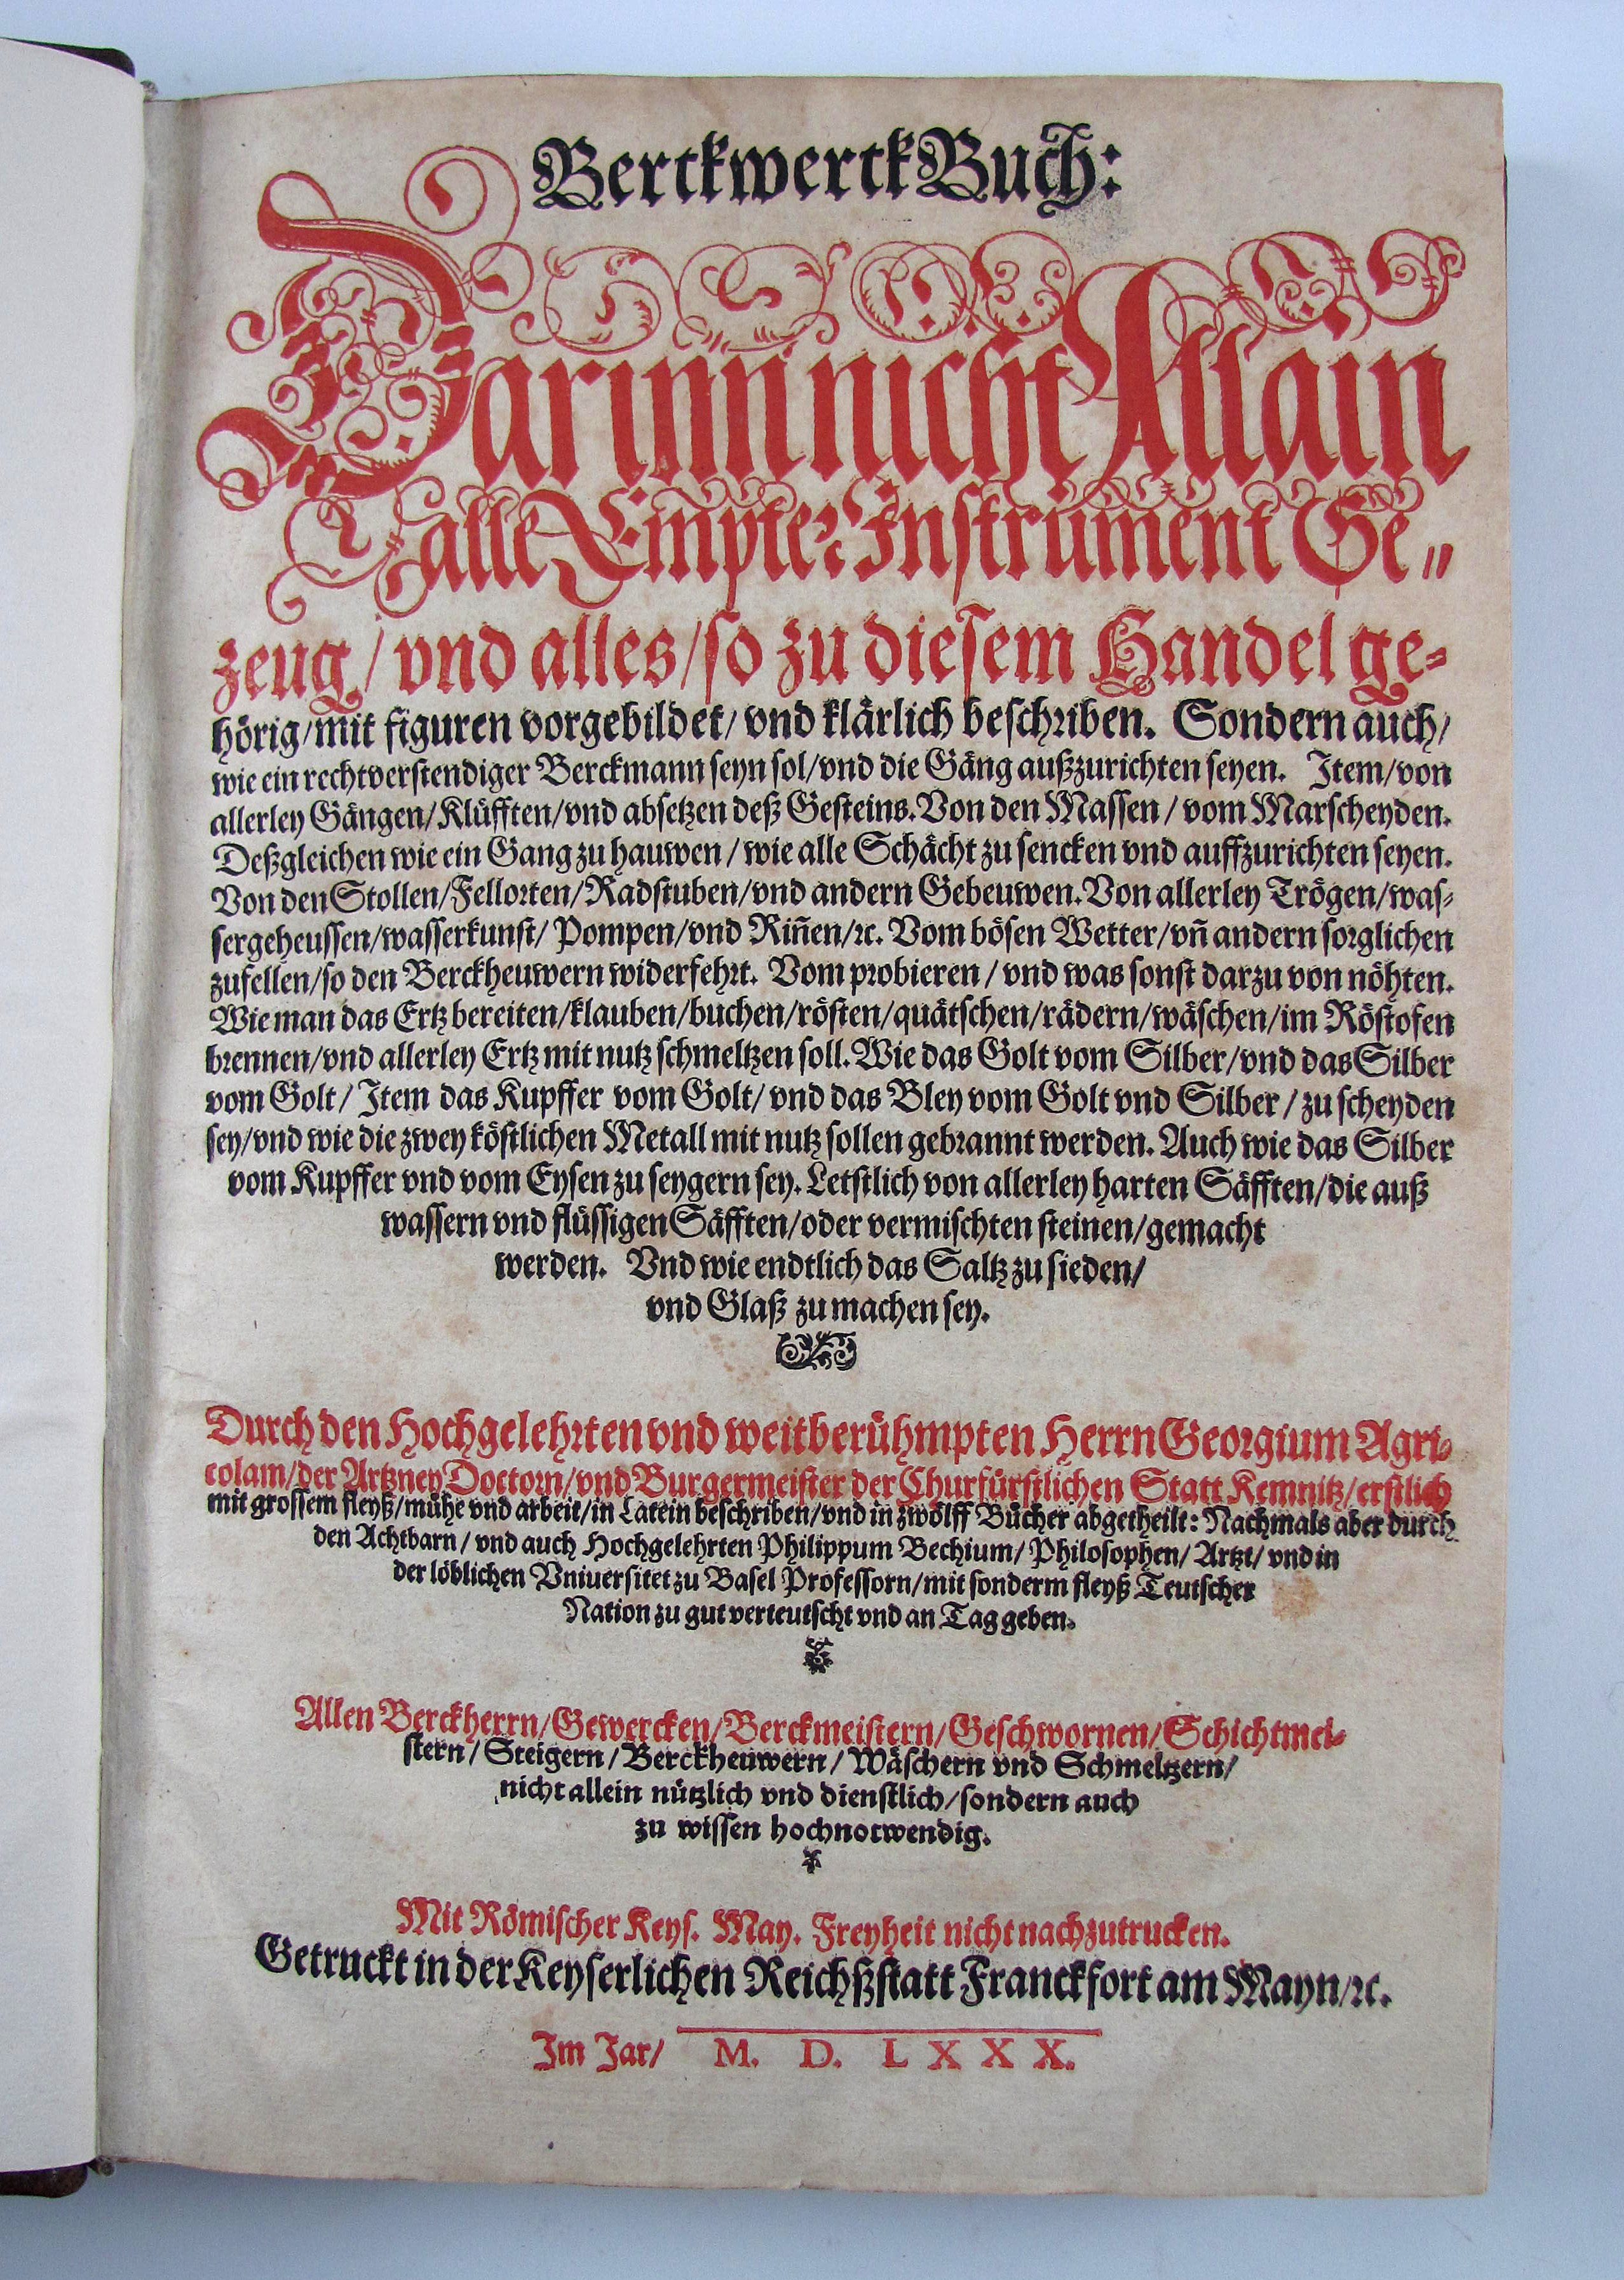 BerckwerckBuch:
Darinn nicht Allain
alle Empter Instrument Ge⸗
zeug / vnd alles / so zu diesem Handel ge⸗
hörig / mit figuren vorgebildet / vnd klärlich beschriben. Sondern auch /
wie ein rechtverstendiger Berckmann seyn sol / vnd die Gäng außzurichten seyen. Item / von
allerley Gängen / Klüfften / vnd absetzen deß Gesteins. Von den Massen / vom Marscheyden.
Deßgleichen wie ein Gang zu hauwen / wie alle Schächt zu sencken vnd auffzurichten seyen.
Von den Stollen / Fellorten / Radstuben / vnd andern Gebeuwen. Von allerley Trögen / was⸗
sergeheussen / wasserkunst / Pompen / vnd Riñen / ꝛc. Vom bösen Wetter / vñ andern sorglichen
zufellen / so den Berckheuwern widerfehrt. Vom probieren / vnd was sonst darzu von nöhten.
Wie man das Ertz bereiten / klauben / buchen / rösten / quätschen / rädern / wäschen / im Röstofen
brennen / vnd allerley Ertz mit nutz schmeltzen soll. Wie das Golt vom Silber / vnd das Silber
vom Golt / Item das Kupffer vom Golt / vnd das Bley vom Golt vnd Silber / zu scheyden
sey / vnd wie die zwey köstlichen Metall mit nutz sollen gebrannt werden. Auch wie das Silber
vom Kupffer vnd vom Eysen zu seygern sey. Letstlich von allerley harten Säfften / die auß
wassern vnd flüssigen Säfften / oder vermischten steinen / gemacht
werden. Vnd wie endtlich das Saltz zu sieden /
vnd Glaß zu machen sey.
Durch den Hochgelehrten vnd weitberühmpten Herrn Georgium Agri⸗
colam / der Artzney Doctorn / vnd Burgermeister der Churfürstlichen Statt Kemnitz / erstlich
mit grossem fleyß / mühe vnd arbeit / in Latein beschriben / vnd in zwölff Bücher abgetheilt: Nachmals aber durch
den Achtbarn / vnd auch Hochgelehrten Philippum Bechium / Philosophen / Artzt / vnd in
der löblichen Vniuersitet zu Basel Professorn / mit sonderm fleyß Teutscher
Nation zu gut verteutscht vnd an Tag geben.
Allen Berckherrn / Gewercken / Berckmeistern / Geschwornen / Schichtmei⸗
stern / Steigern / Berckheuwern / Wäschern vnd Schmeltzern /
nicht allein nützlich vnd dienstlich / sondern auch
zu wissen hochnotwendig.
Mit Römischer Keys. May. Freyheit nicht nachzutrucken.
Getruckt in der Keyserlichen Reichßstatt Franckfort am Mayn / ꝛc.
Im Jar / M. D. L X X X.